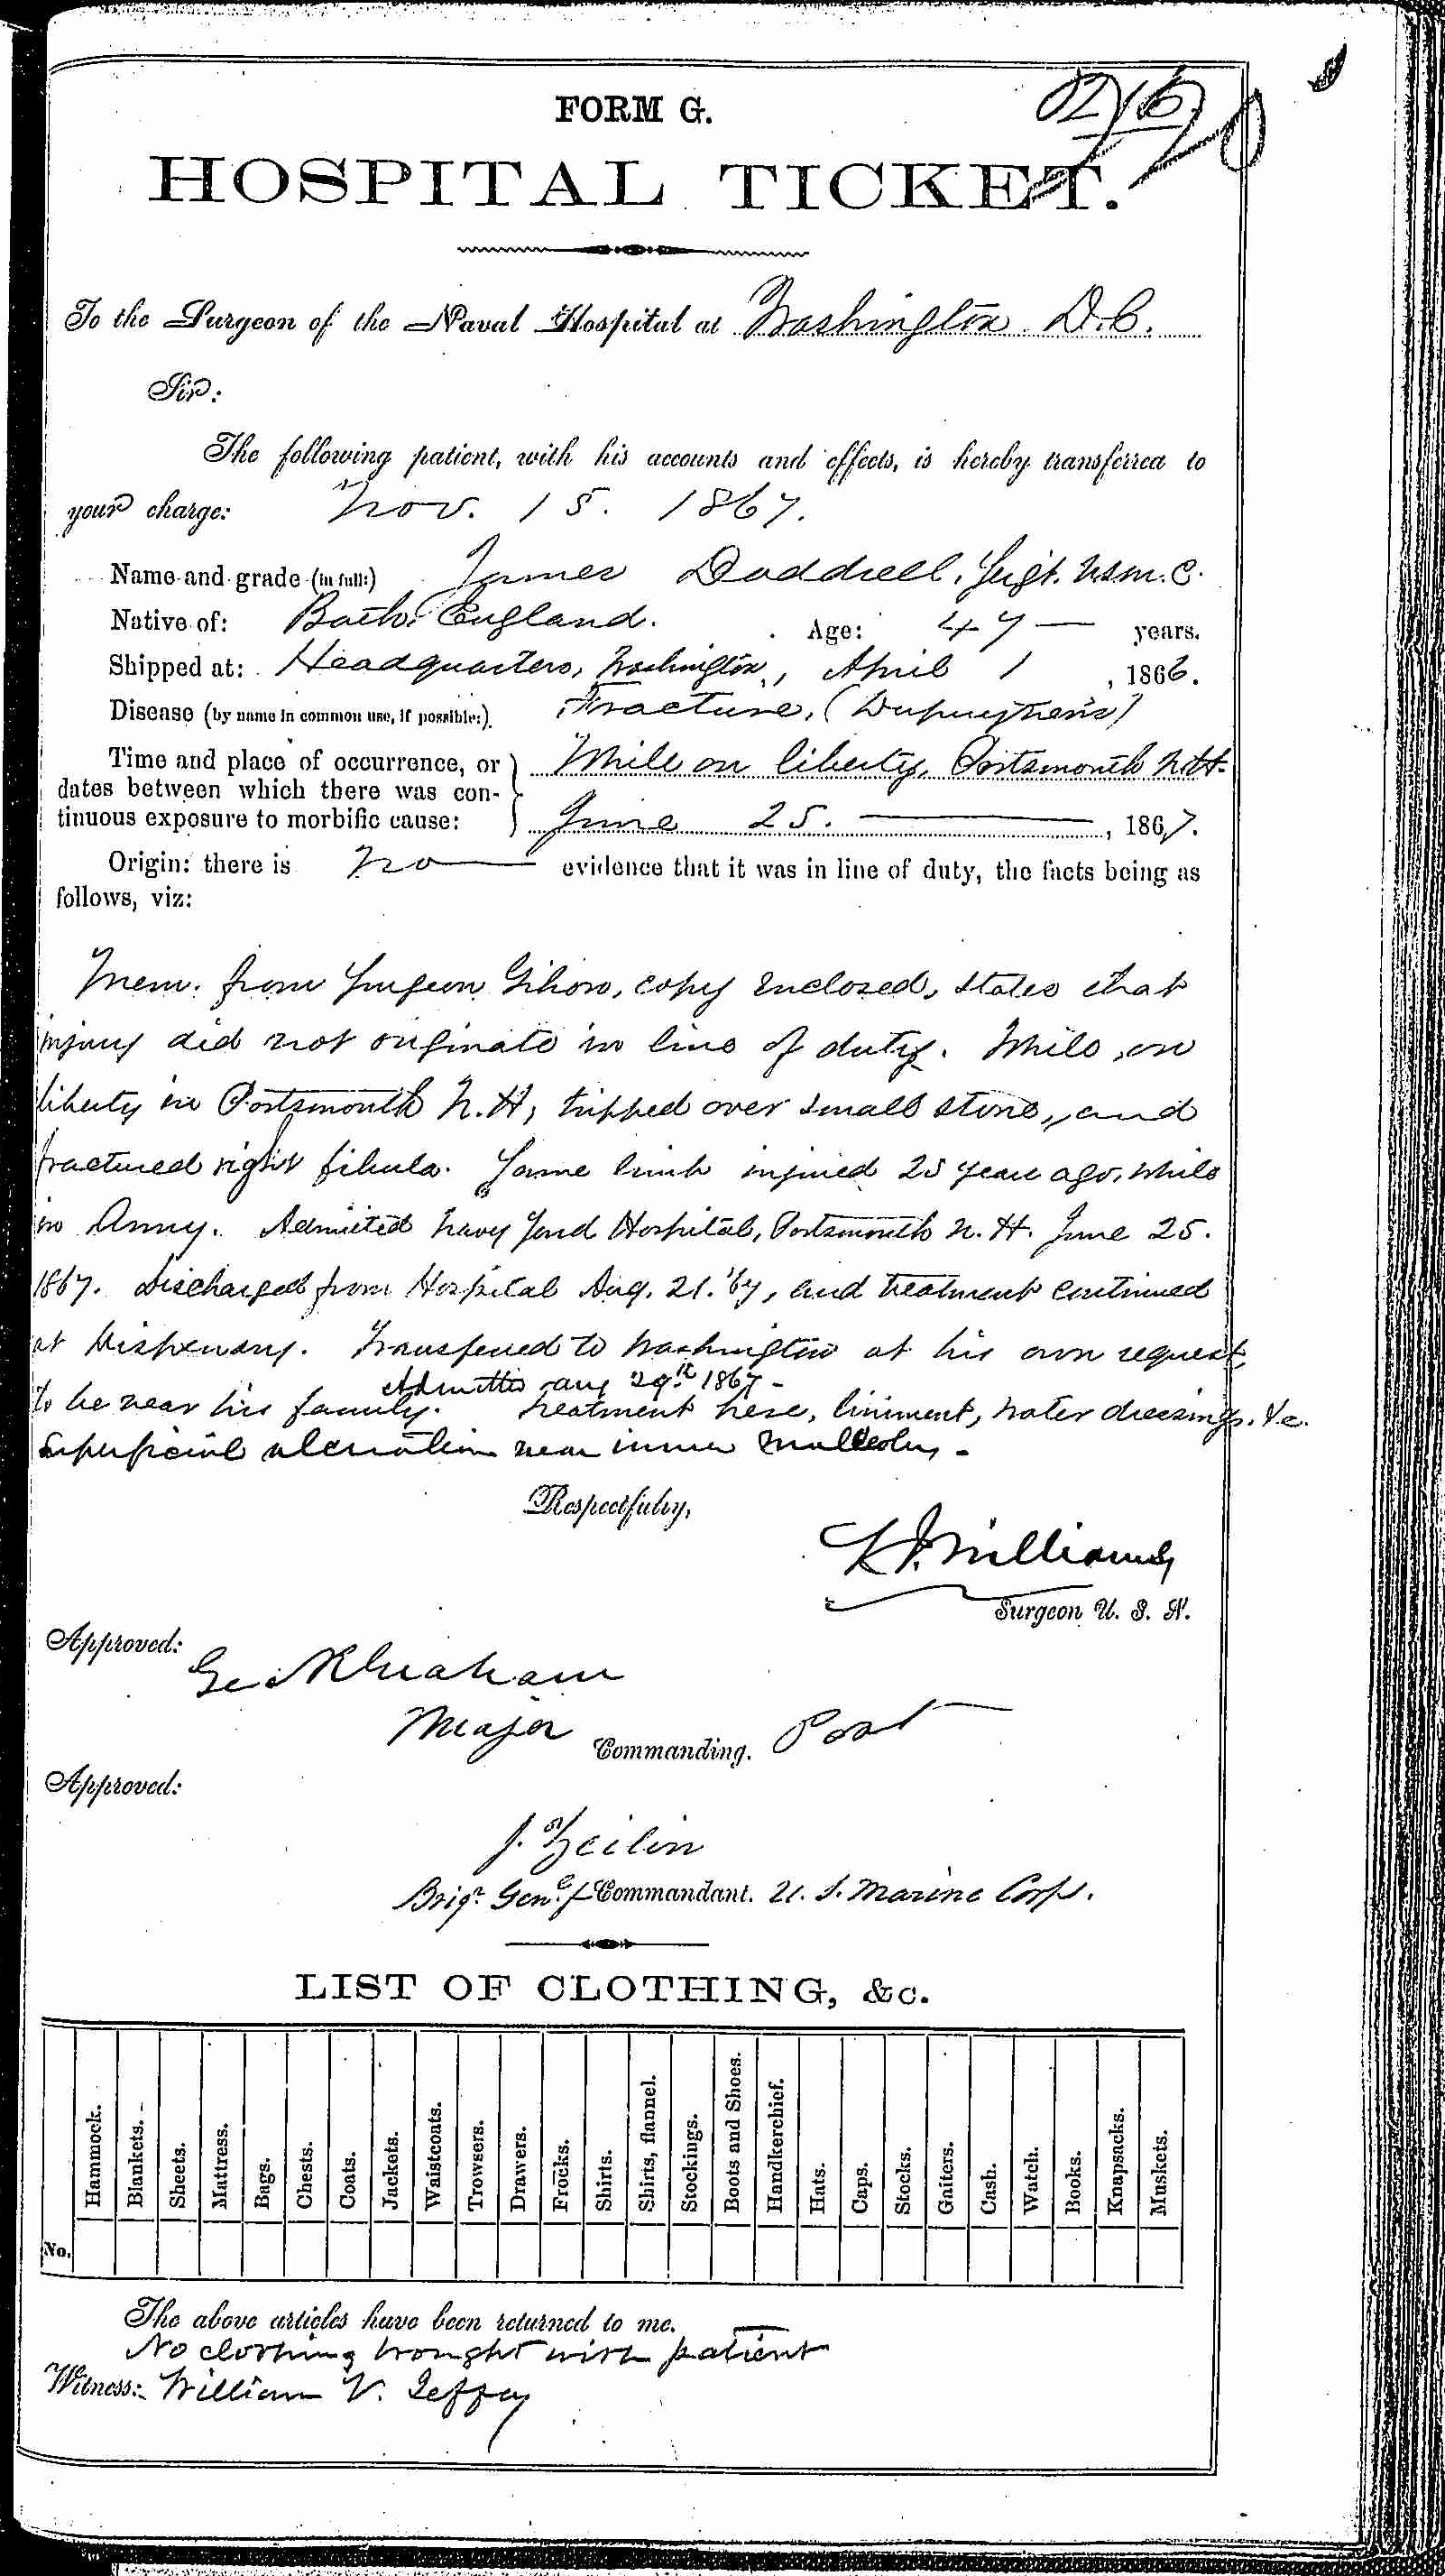 FORM G.
HOSPITAL TICKET.
To the Surgeon of the Naval Hospital at Washington D.C.
Sir:
The following patient, with his accounts and effects, is hereby transferred to
your charge: Nov. 15. 1867.
Name and grade (in full:) James Doddrell, Sergt. U.S.M.C.
Native of: Bath, England. Age: 47 — years.
Shipped at: Headquarters, Washington, April 1, 1866.
Disease (by name in common use, if possible:) Fracture, (Dupuytren's)
Time and place of occurrence, or
dates between which there was con-
tinuous exposure to morbific cause:
While on liberty, Portsmouth N.H.
June 25. — , 1867.
Origin: there is no — evidence that it was in line of duty, the facts being as
follows, viz:
Mem. from Surgeon Gihon, copy enclosed, states that
injury did not originate in line of duty. While on
liberty in Portsmouth N.H, tripped over small stone, and
fractured right fibula. Same limb injured 25 years ago, while
in Army. Admitted Navy Yard Hospital, Portsmouth N.H. June 25.
1867. Discharged from Hospital Aug. 21. '67, and treatment continued
at Dispensary. Transferred to Washington at his own request,
Admitted Aug 29th 1867 -
to be near his family. Treatment here, liniment, water dressings, &c.
Superficial ulceration near inner malleolus -
Respectfully,
Williams
Surgeon U. S. N.
Approved:
Geo R Graham
Major Commanding. Post
Approved:
J. Zeilin
Brigr. Genl. & Commandant. U. S. Marine Corps.
LIST OF CLOTHING, &c.
Hammock. Blankets. Sheets. Mattress. Bags. Chests. Coats. Jackets. Waistcoats. Trowsers. Drawers. Frocks. Shirts. Shirts, flannel. Stockings. Boots and Shoes. Handkerchief. Hats. Caps. Stocks. Gaiters. Cash. Watch. Books. Knapsacks. Muskets.
No.
The above articles have been returned to me.
No clothing brought with patient
Witness: William V.